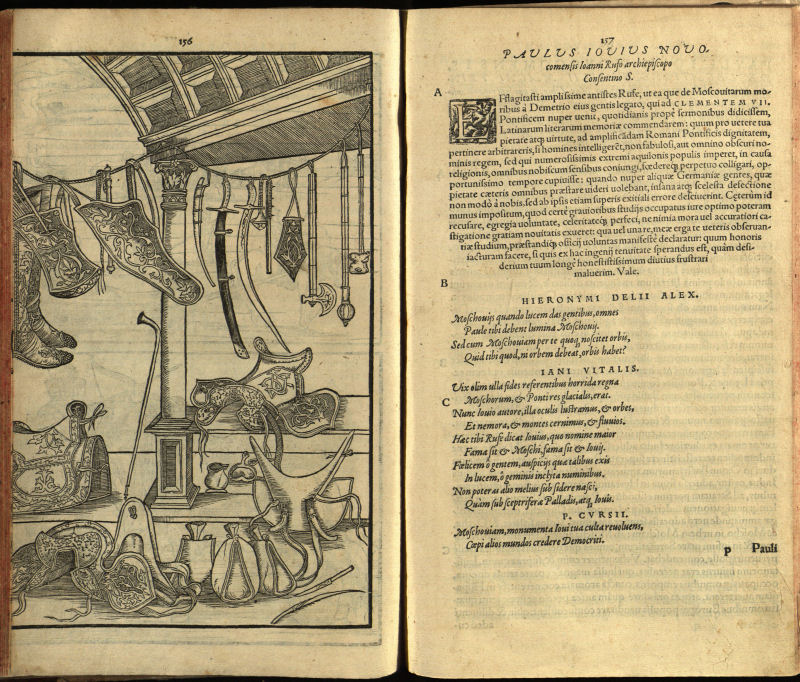 156
157
PAULUS IOVIUS NOVO-
comensis Ioanni Rufo archiepiscopo
Consentino S.
A
EFflagitasti amplissime antistes Rufe, ut ea que de Moscouitarum mo-
ribus à Demetrio eius gentis legato, qui ad CLEMENTEM VII.
Pontificem nuper uenit, quotidianis propè sermonibus didicissem,
Latinarum literarum memoriæ commendarem: quum pro uetere tua
pietate atq; uirtute, ad amplificādam Romani Pontificis dignitatem,
pertinere arbitrareris, si homines intelligerēt, non fabulosi, aut omnino obscuri no-
minis regem, sed qui numerosissimis extremi aquilonis populis imperet, in causa
religionis, omnibus nobiscum sensibus coniungi, fœdereq; perpetuo colligari, op-
portunissimo tempore cupiuisse: quando nuper aliquæ Germaniæ gentes, quæ
pietate cæteris omnibus præstare uideri uolebant, insana atq; scelesta defectione
non modò à nobis, sed ab ipsis etiam superis exitiali errore desciuerint. Cæterùm id
munus impositum, quod certè grauioribus studijs occupatus iure optimo poteram
recusare, egregia uoluntate, celeritateq; perfeci, ne nimia mora uel accuratiori ca-
stigatione gratiam nouitatis exueret: qua uel una re, meæ erga te ueteris obseruan-
tiæ studium, præstandiq; officij uoluntas manifestè declaratur: quum honoris
iacturam facere, si quis ex hac ingenij tenuitate sperandus est, quàm desi-
derium tuum longè honestissimum diutius frustrari
maluerim. Vale.
B
HIERONYMI DELII ALEX.
Moschouijs quando lucem das gentibus, omnes
Paule tibi debent lumina Moschouij.
Sed cum Moschouiam per te quoq; noscitet orbis,
Quid tibi quod, ni orbem debeat, orbis habet?
IANI VITALIS.
Vix olim ulla fides referentibus horrida regna
C
Moschorum, & Ponti res glacialis, erat.
Nunc Iouio autore, illa oculis lustramus, & orbes,
Et nemora, & montes cernimus, & fluuios.
Hæc tibi Rufe dicat Iouius, quo nomine maior
Fama sit & Moschi, fama sit & Iouij.
Fœlicem ô gentem, auspicijs quæ talibus exis
In lucem, ô geminis inclyta numinibus.
Non poteras alio melius sub sidere nasci,
Quàm sub sceptrifera Palladis, atq; Iouis.
P. CVRSII.
Moschouiam, monumenta Ioui tua culta reuoluens,
Cœpi alios mundos credere Democriti.
p Pauli